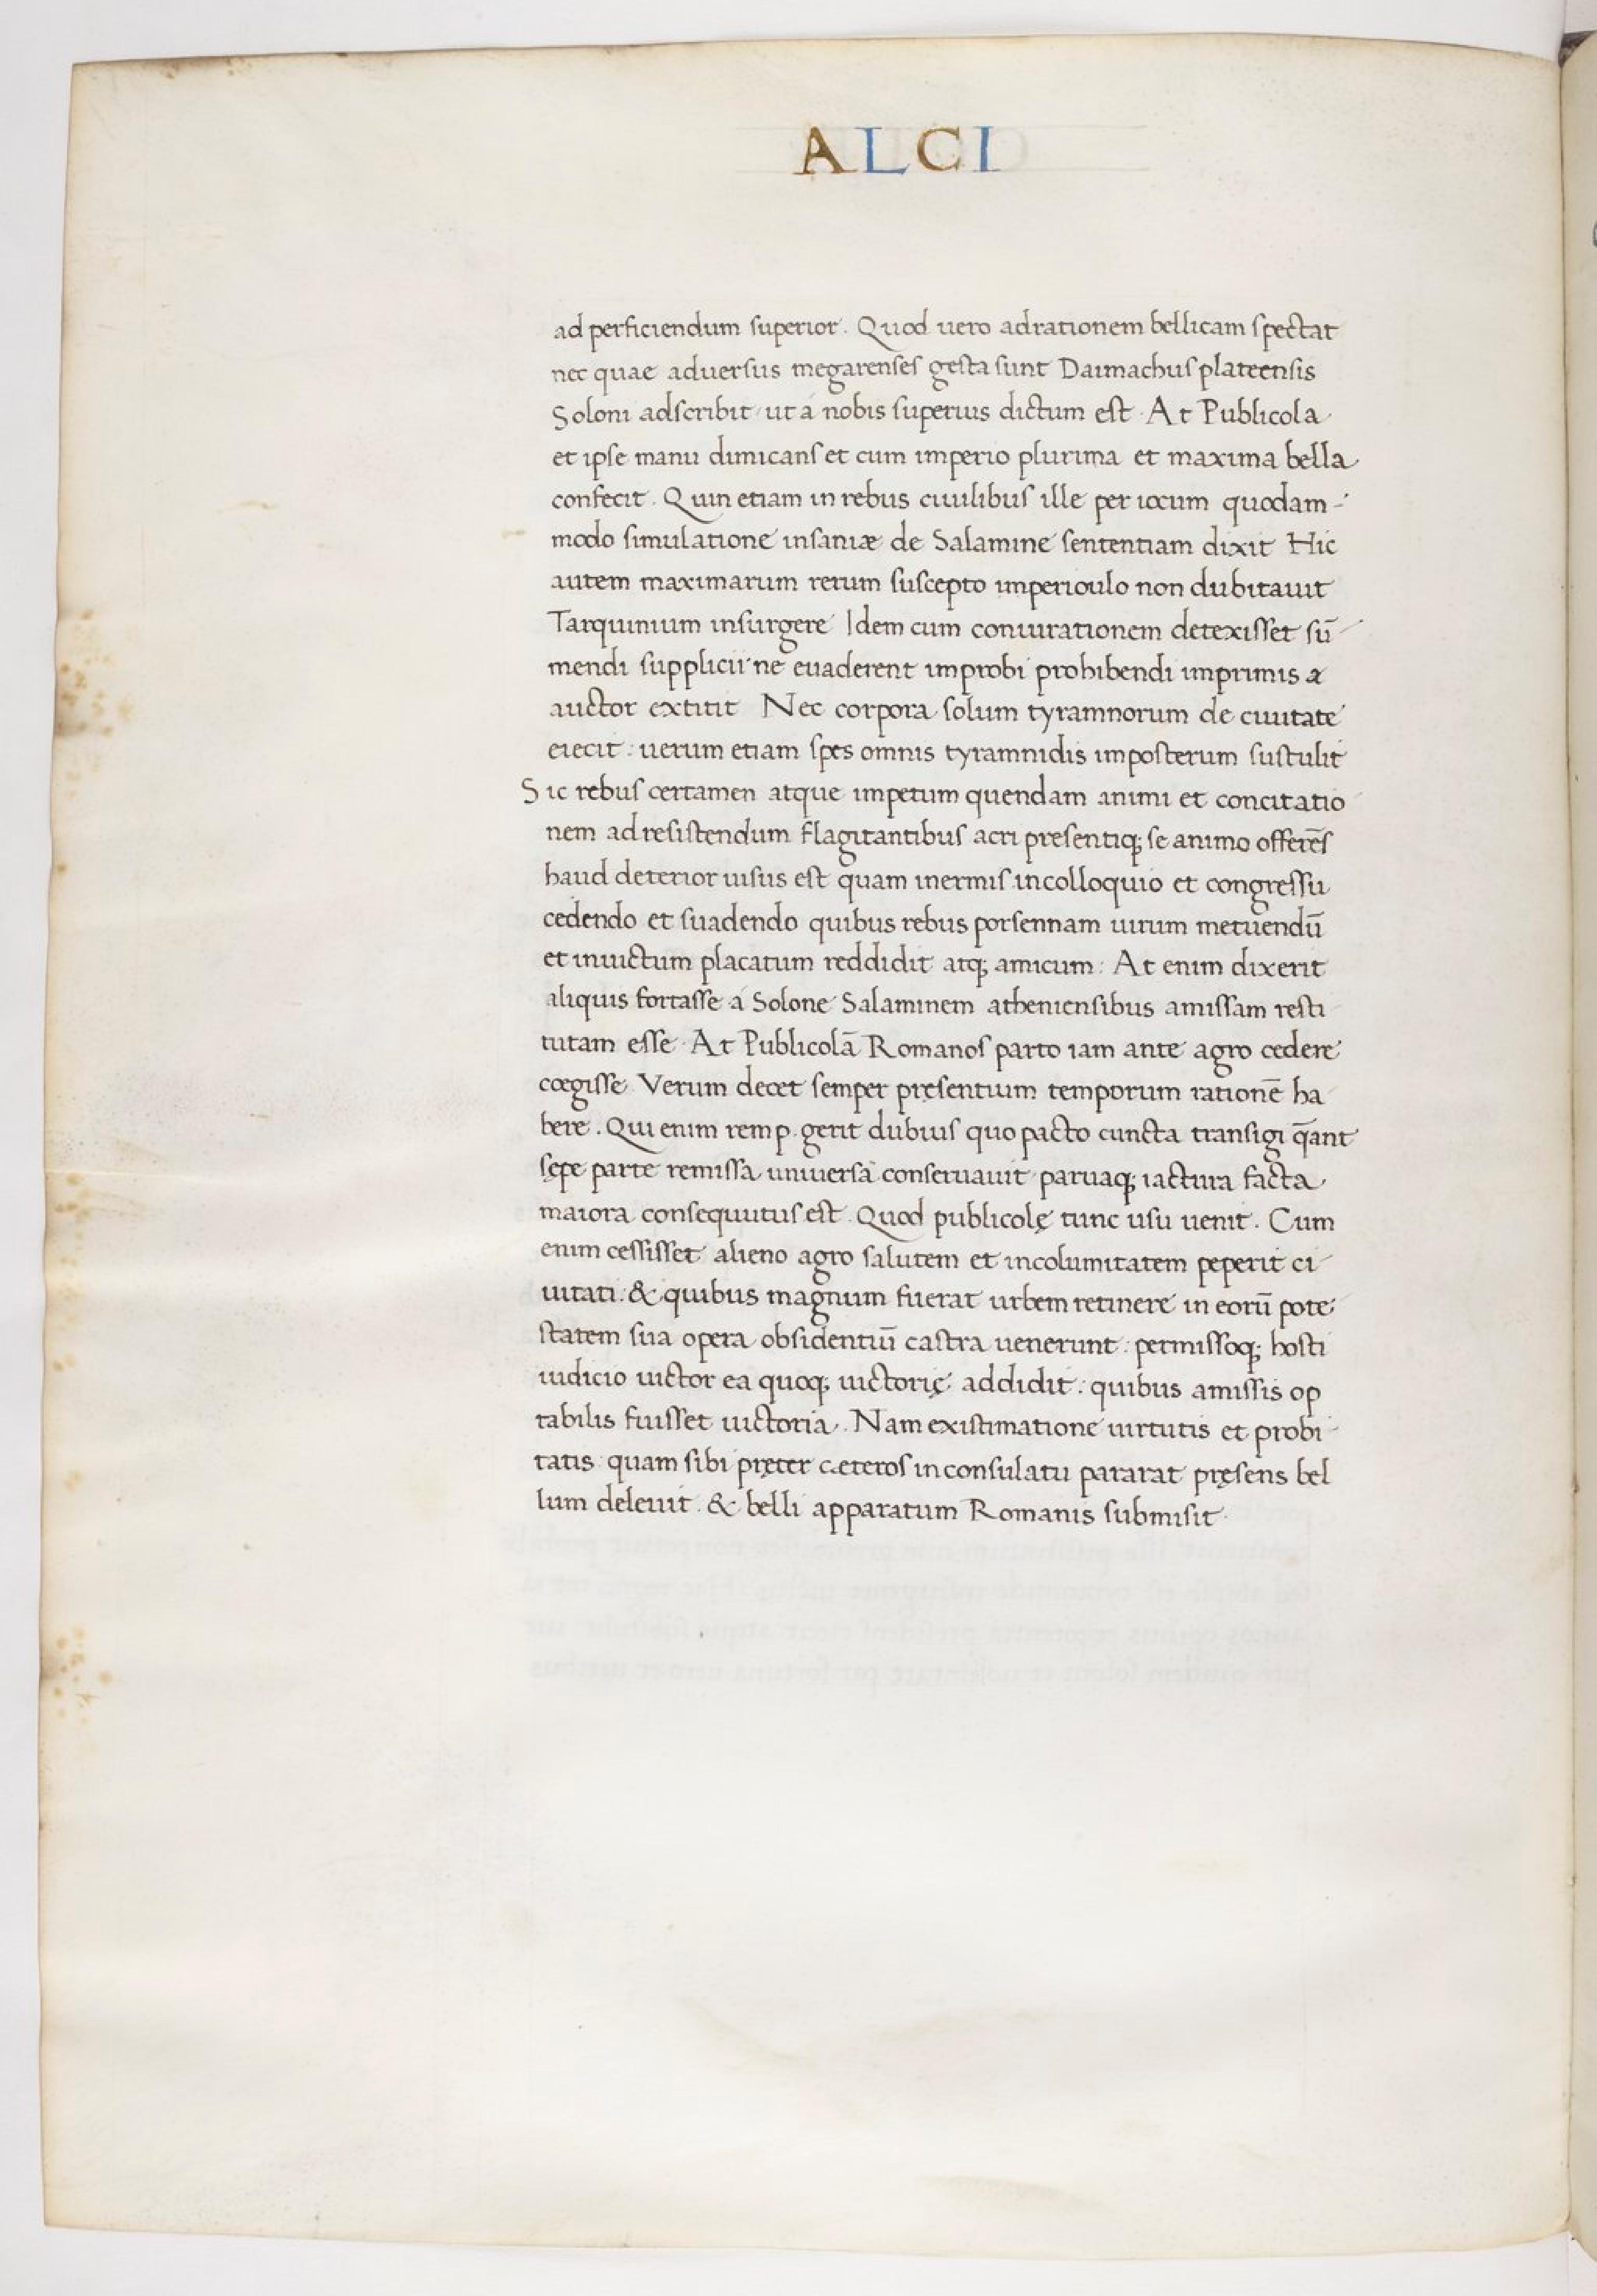 ALCI
ad perficiendum superior. Quod uero ad rationem bellicam spectat
nec quae aduersus megarenses gesta sunt Daimachus plateensis
Soloni adscribit ut á nobis superius dictum est. At Publicola
et ipse manu dimicans et cum imperio plurima et maxima bella
confecit. Quin etiam in rebus ciuilibus ille per iocum quodam-
modo simulatione insaniæ de Salamine sententiam dixit Hic
autem maximarum rerum suscepto imperioulo non dubitauit
Tarquinium insurgere Idem cum coniurationem detexisset sū-
mendi supplicii ne euaderent improbi prohibendi imprimis a
auctor extitit Nec corpora solum tyramnorum de ciuitate
eiecit: uerum etiam spes omnis tyramnidis imposterum sustulit
Sic rebus certamen atque impetum quendam animi et concitatio
nem ad resistendum flagitantibus acri presentiq; se animo offerēs
haud deterior uisus est quam inermis in colloquio et congressu
cedendo et suadendo quibus rebus porsennam uirum metuendū
et inuictum placatum reddidit atq; amicum: At enim dixerit
aliquis fortasse á Solone Salaminem atheniensibus amissam resti
tutam esse. At Publicolā Romanos parto iam ante agro cedere
cœgisse Verum decet semper pręsentium temporum rationē ha
bere. Qui enim rem p. gerit dubius quo pacto cuncta transigi q̄ant
sępe parte remissa uniuersa conseruauit paruaq; iactura facta
maiora consequutus est. Quod publicolę tunc usu uenit. Cum
enim cessisset alieno agro salutem et incolumitatem peperit ci-
uitati: & quibus magnum fuerat urbem retinere in eorū pote
statem sua opera obsidentiū castra uenerunt: permissoq; hosti
iudicio uictor ea quoq; uictorię addidit: quibus amissis op
tabilis fuisset uictoria. Nam existimatione uirtutis et probi-
tatis quam sibi pręter cæteros in consulatu pararat pręsens bel
lum deleuit. & belli apparatum Romanis submisit.